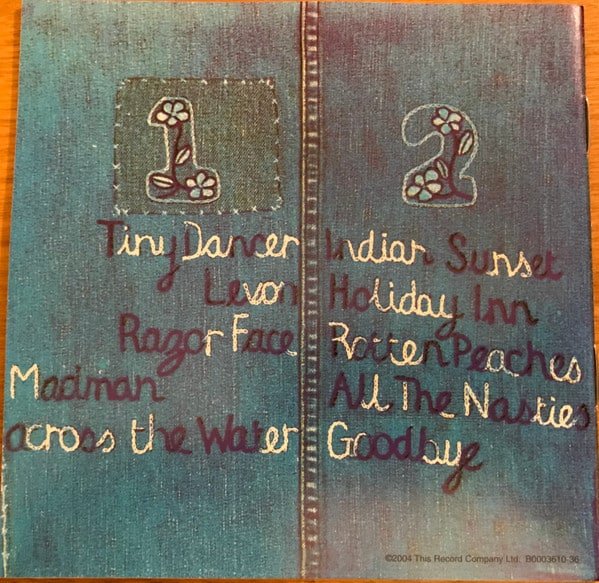 1
Tiny Dancer
Levon
Razor Face
Madman
across the Water
2
Indian Sunset
Holiday Inn
Rotten Peaches
All The Nasties
Goodbye
©2004 This Record Company Ltd. B0003610-36